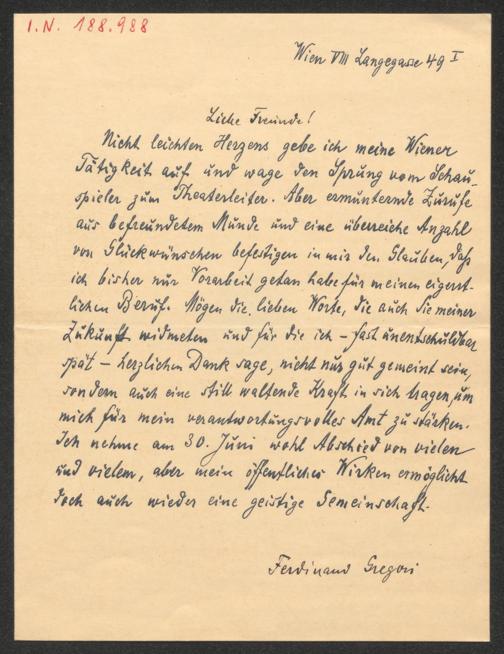 I.N. 188.988
Wien VIII Langegasse 49 I
Liebe Freunde!
Nicht leichten Herzens gebe ich meine Wiener
Tätigkeit auf und wage den Sprung vom Schau-
spieler zum Theaterleiter. Aber ermunternde Zurufe
aus befreundetem Munde und eine überreiche Anzahl
von Glückwünschen befestigen in mir den Glauben, daß
ich bisher nur Vorarbeit getan habe für meinen eigent-
lichen Beruf. Mögen die lieben Worte, die auch Sie meiner
Zukunft widmeten und für die ich – fast unentschuldbar
spät – herzlichen Dank sage, nicht nur gut gemeint sein,
sondern auch eine still waltende Kraft in sich tragen, um
mich für mein verantwortungsvolles Amt zu stärken.
Ich nehme am 30. Juni wohl Abschied von vielen
und vielem, aber mein öffentliches Wirken ermöglicht
doch auch wieder eine geistige Gemeinschaft.
Ferdinand Gregori